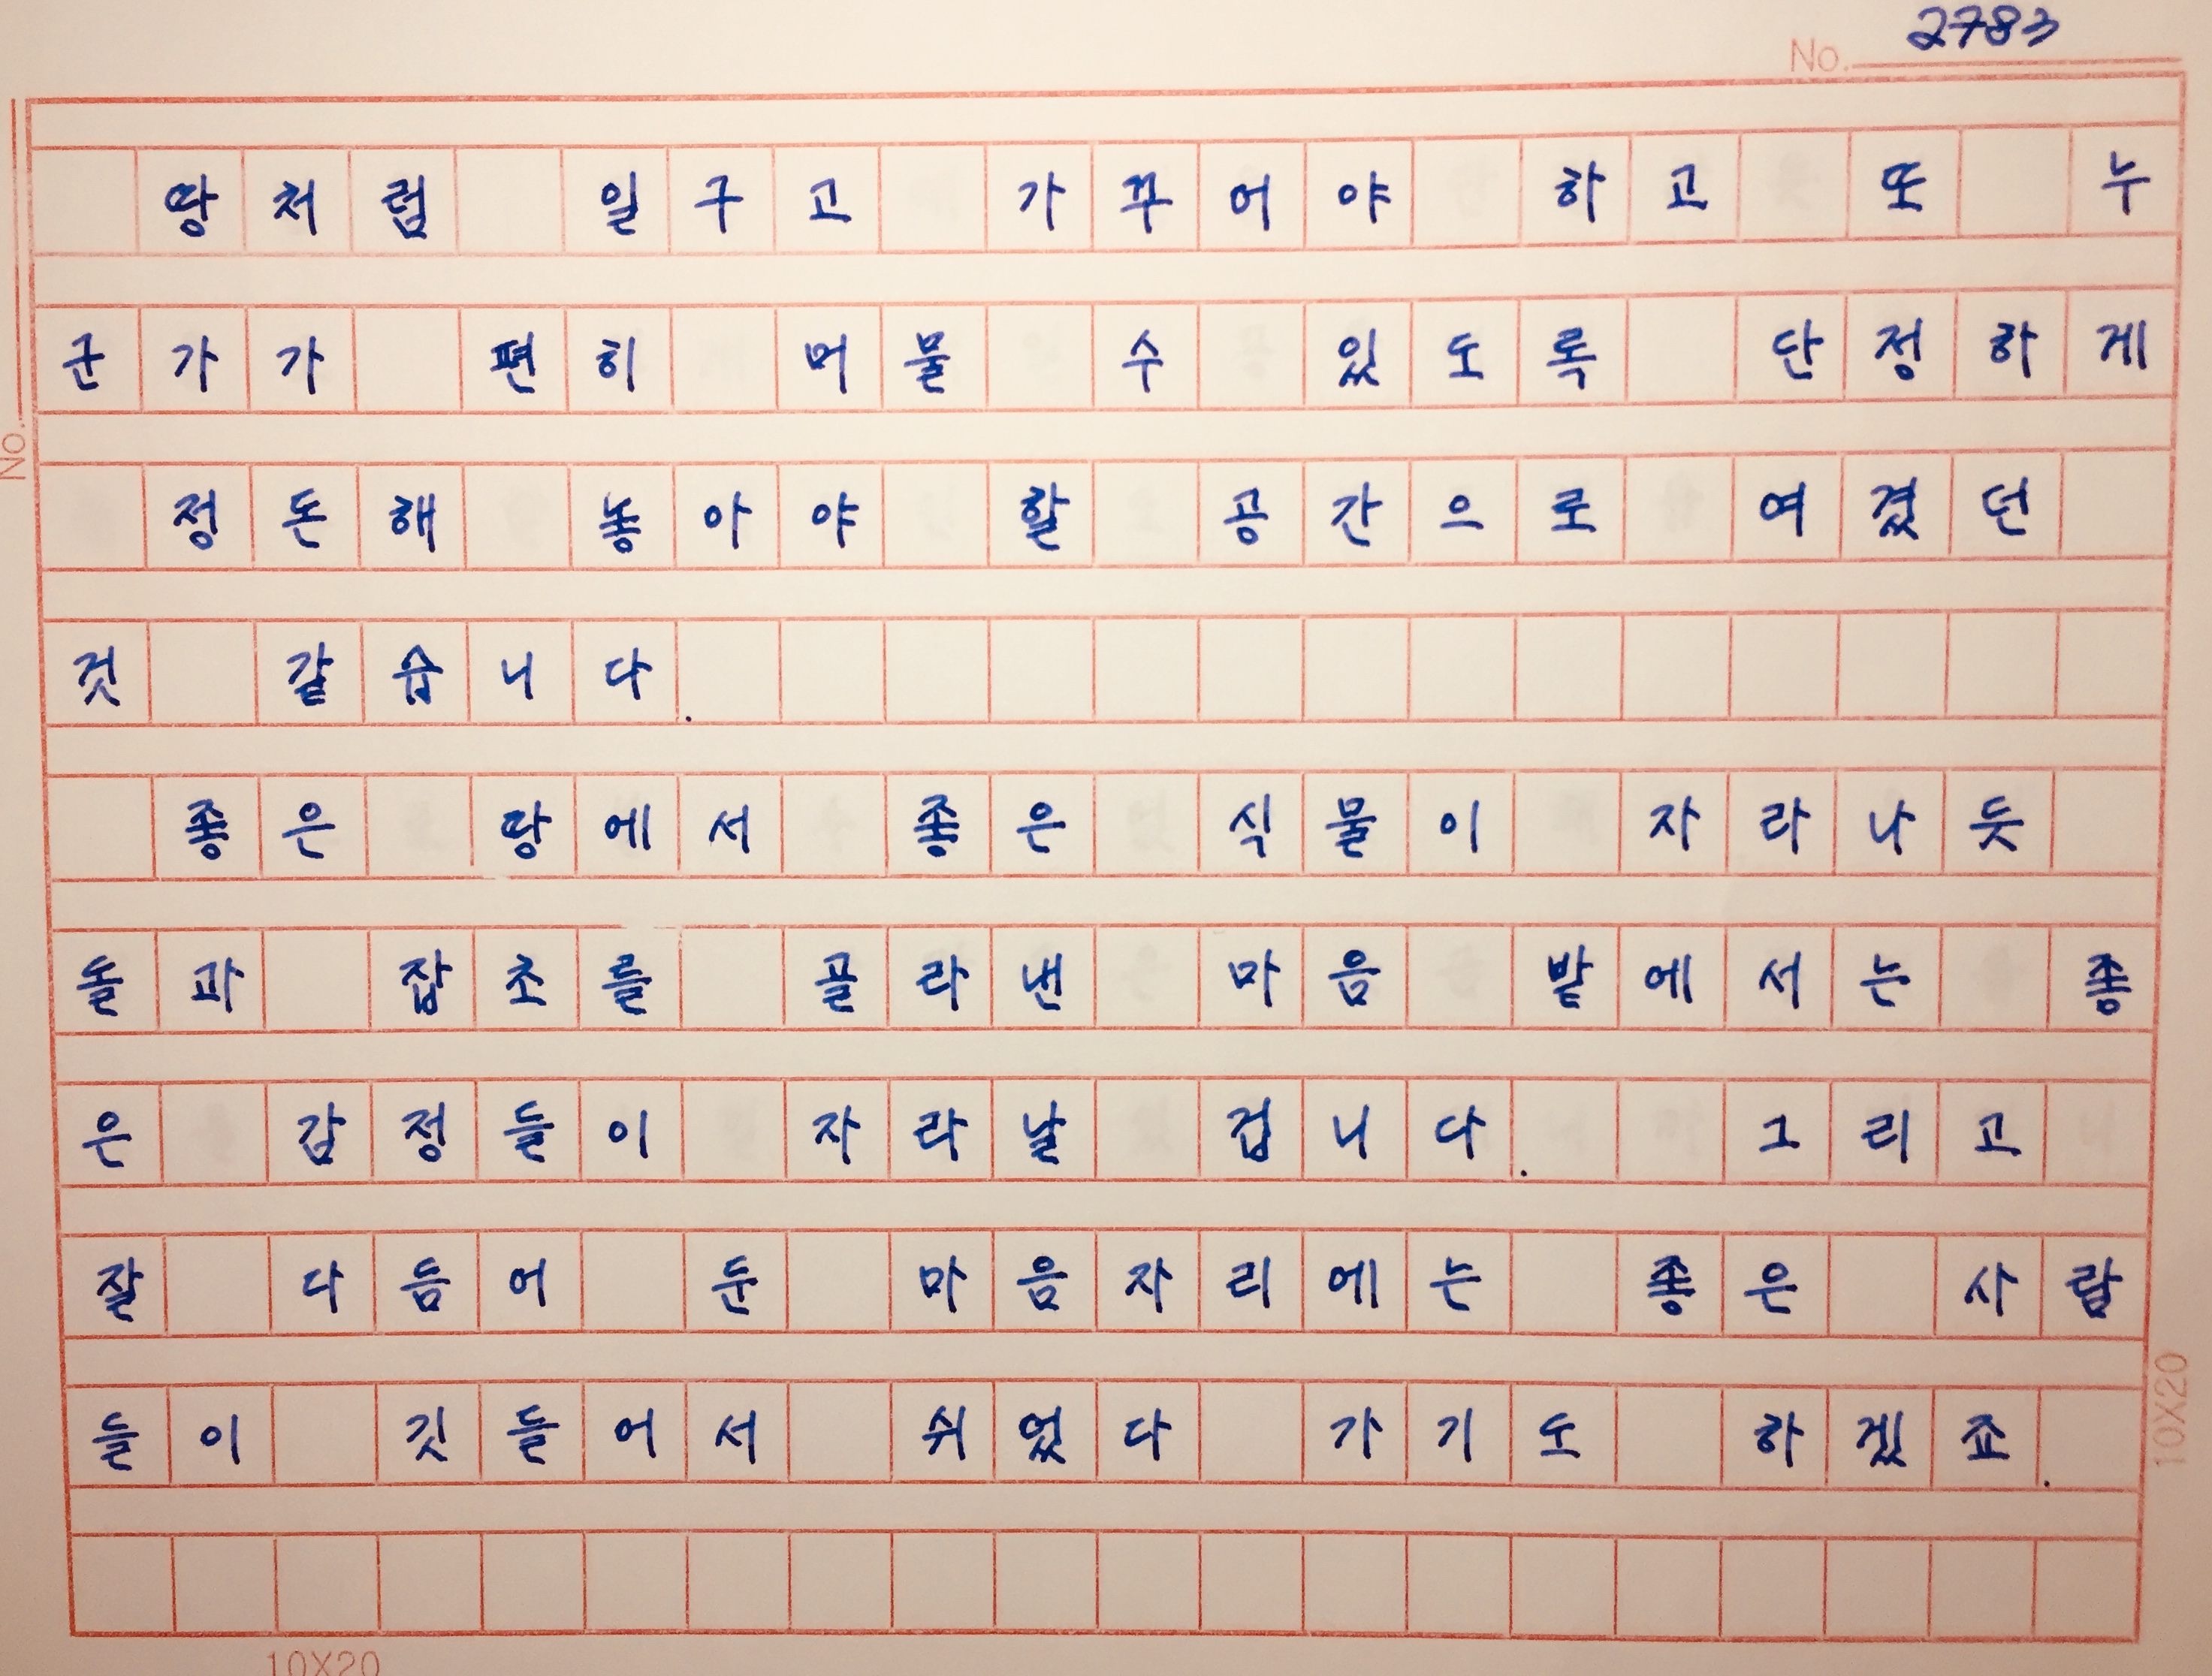 No. 2783
땅처럼 일구고 가꾸어야 하고 또 누
군가가 편히 머물 수 있도록 단정하게
정돈해 놓아야 할 공간으로 여겼던
것 같습니다.
좋은 땅에서 좋은 식물이 자라나듯
돌과 잡초를 골라낸 마음 밭에서는 좋
은 감정들이 자라날 겁니다. 그리고
잘 다듬어 둔 마음자리에는 좋은 사람
들이 깃들어서 쉬었다 가기도 하겠죠.
No.
10X20
10X20